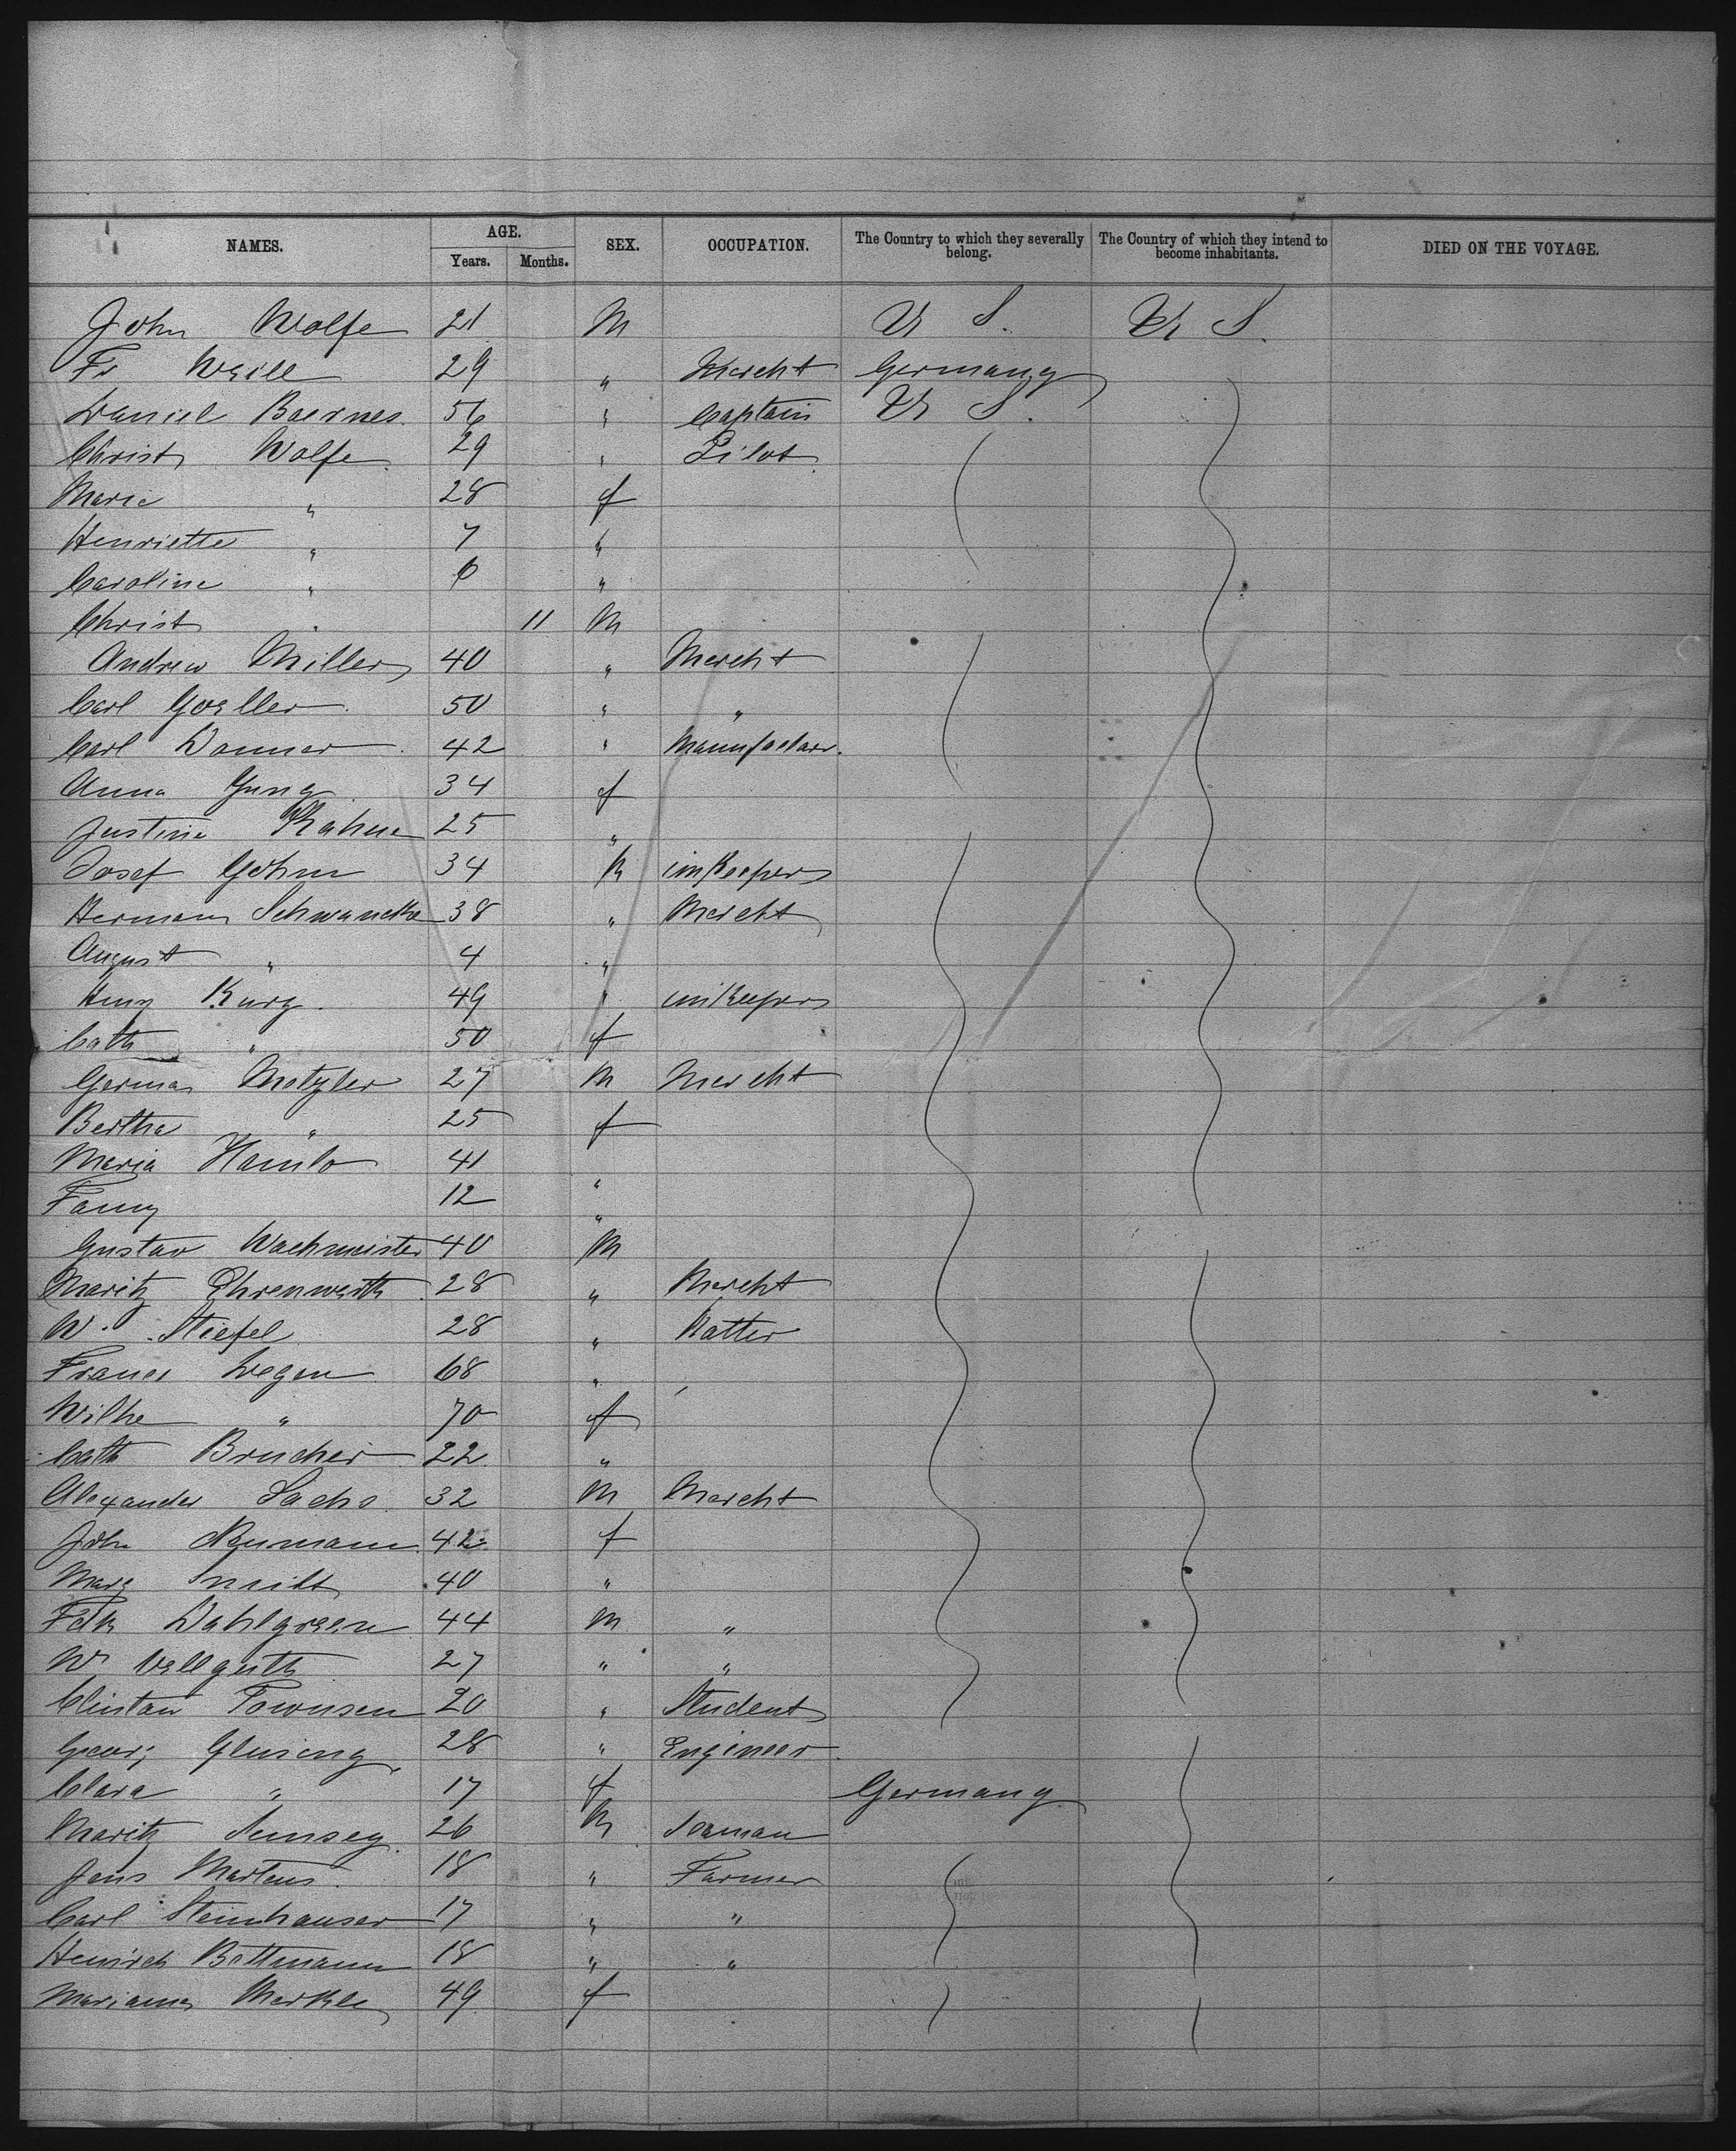 NAMES. AGE. SEX. OCCUPATION. The Country to which they severally belong. The Country of which they intend to become inhabitants. DIED ON THE VOYAGE.
Years. Months.
John Wolfe 21 M U S. U S.
Fr Weill 29 " Mercht Germany
Daniel Baernes. 56 " Captain U S.
Christ Wolfe 29 " Pilot
Marie " 28 f
Henriette " 7 "
Caroline " 6 "
Christ " 11 M
Andrew Miller 40 " Mercht
Carl Goeller 50 " "
Carl Danner 42 "
Anna Gung 34 f
Justine 25 "
Josef Göhm 34 M innkeeper
Hermann Schwancke 38 " Mercht
August " 4 "
Henry Kurz. 49 " innkeeper
Cath " 50 f
German Metzler 27 M Mercht
Bertha " 25 f
Maria 41 "
Fanny 12 "
Gustav Wachmeister 40 M
Moritz Ehrenwerth 28 " Mercht
W. Stiefel 28 " Hatter
Franci Degen 68 "
Wilhe " 70 f
Cath Brucher 22 "
Alexander Sachs 32 M Mercht
John Neumann 42 f
Marg 40 "
Dahlgreen 44 M "
Wm Vellguth 27 " "
Clinton Townsen 20 " Student
Georg Glusing 28 " Engineer
Clara " 17 f Germany
Moritz 26 M Seaman
Jens Martens. 18 " Farmer
Carl Steinhauser 17 " "
Heinrich Bottmann 18 " "
Marianna Merkle 49 f